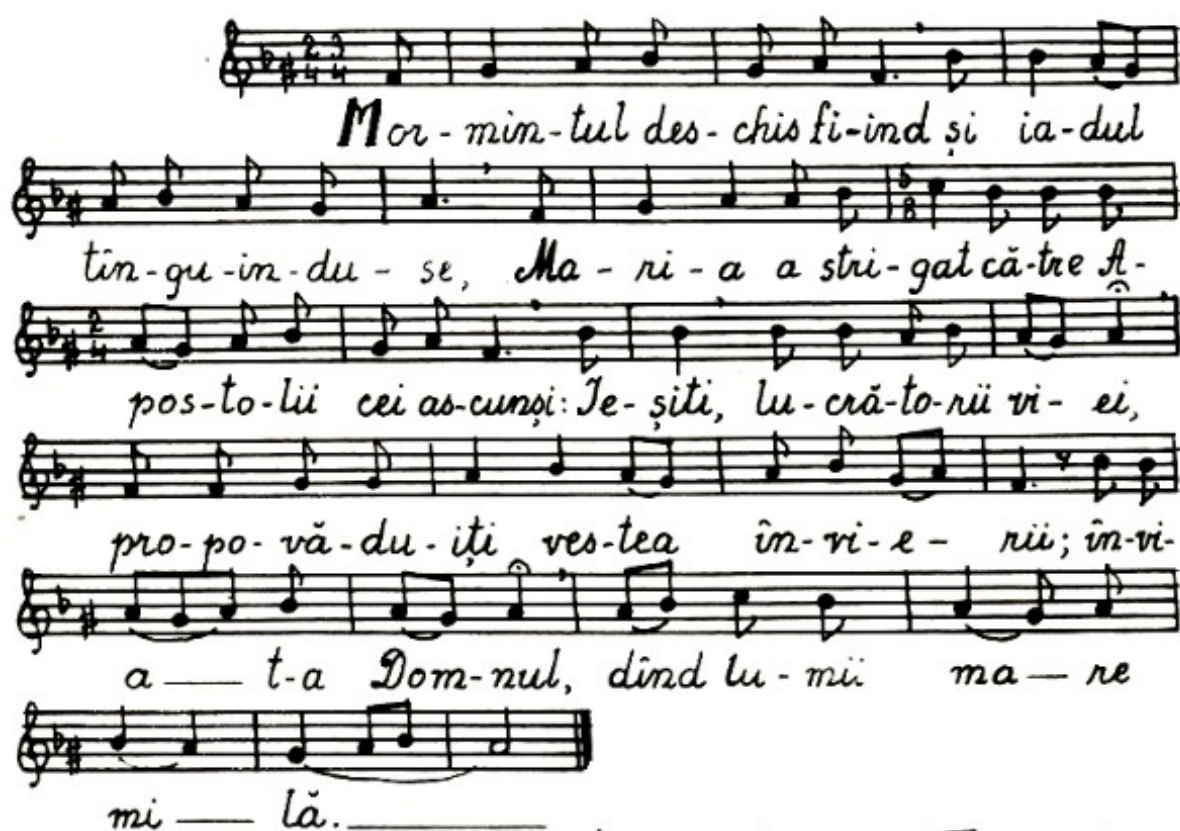 Mor-min-tul des-chis fi-ind și ia-dul
tîn-gu-in-du-se, Ma-ri-a a stri-gat că-tre A-
pos-to-lii cei as-cunși: Ie-șiti, lu-cră-to-rii vi-ei,
pro-po-vă-du-iți ves-tea în-vi-e-rii; în-vi-
a t-a Dom-nul, dînd lu-mii ma-re
mi-lă.